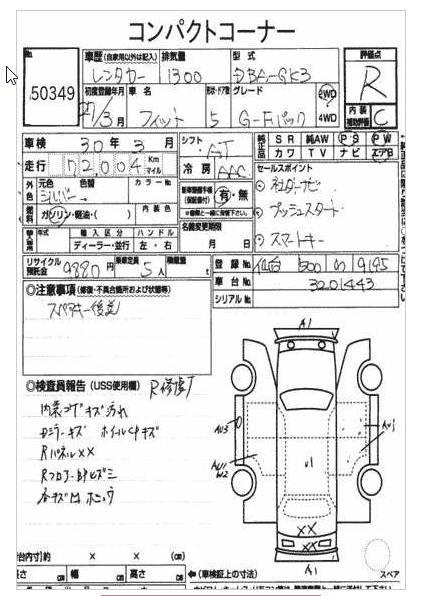 コンパクトコーナー
No. 50349
車歴 (自家用以外は記入) 排気量 型式
レンタカー 1300 DBA-GK3
初度登録年月 車名 形状・ドア数 グレード 2WD
27/3月 フィット 5 G-Fパック 4WD
評価点
R
内装
補助評価 C
車検 30年3月
シフト AT
走行 72,004 Km マイル
冷房 AAC
純正品 SR 純AW PS PW
カワ TV ナビ エアB
外色 元色 色替 カラーNo.
シルバー
燃料 ガソリン・軽油・( ) 内装色
新車整備手帳(保証書付) 有・無
セールスポイント
社外ナビ
プッシュスタート
スマートキー
年式 輸入区分 ハンドル
ディーラー・並行 左・右
名義変更期限
月 日
リサイクル預託金 9880円 乗車定員 5人 積載量 t
登録No. 仙台 500 9195
車台No. 3201443
シリアルNo.
◎注意事項(修復・不具合箇所および状態等)
スペアキー後送
◎検査員報告(USS使用欄) R修復
内装コゲキズ汚れ
ホイールCPキズ
RパネルXX
各キズ凹
A1
AU3
AU1
W2
AU1
U1
XX
XX
A1
台内寸)約 × × (cm)
長さ cm 幅 cm 高さ cm ←(車検証上の寸法)
スペア